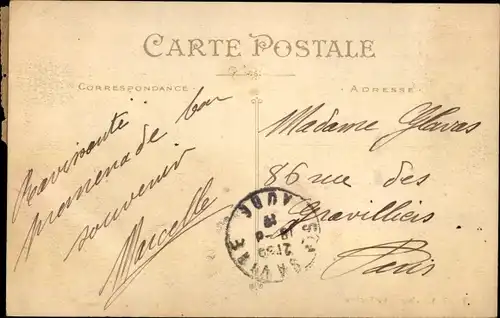 CARTE POSTALE
CORRESPONDANCE
ADRESSE
Ravissante
promenade bon
souvenir
Marcelle
Madame Glavas
86 rue des
Gravilliers
Paris
AUDE